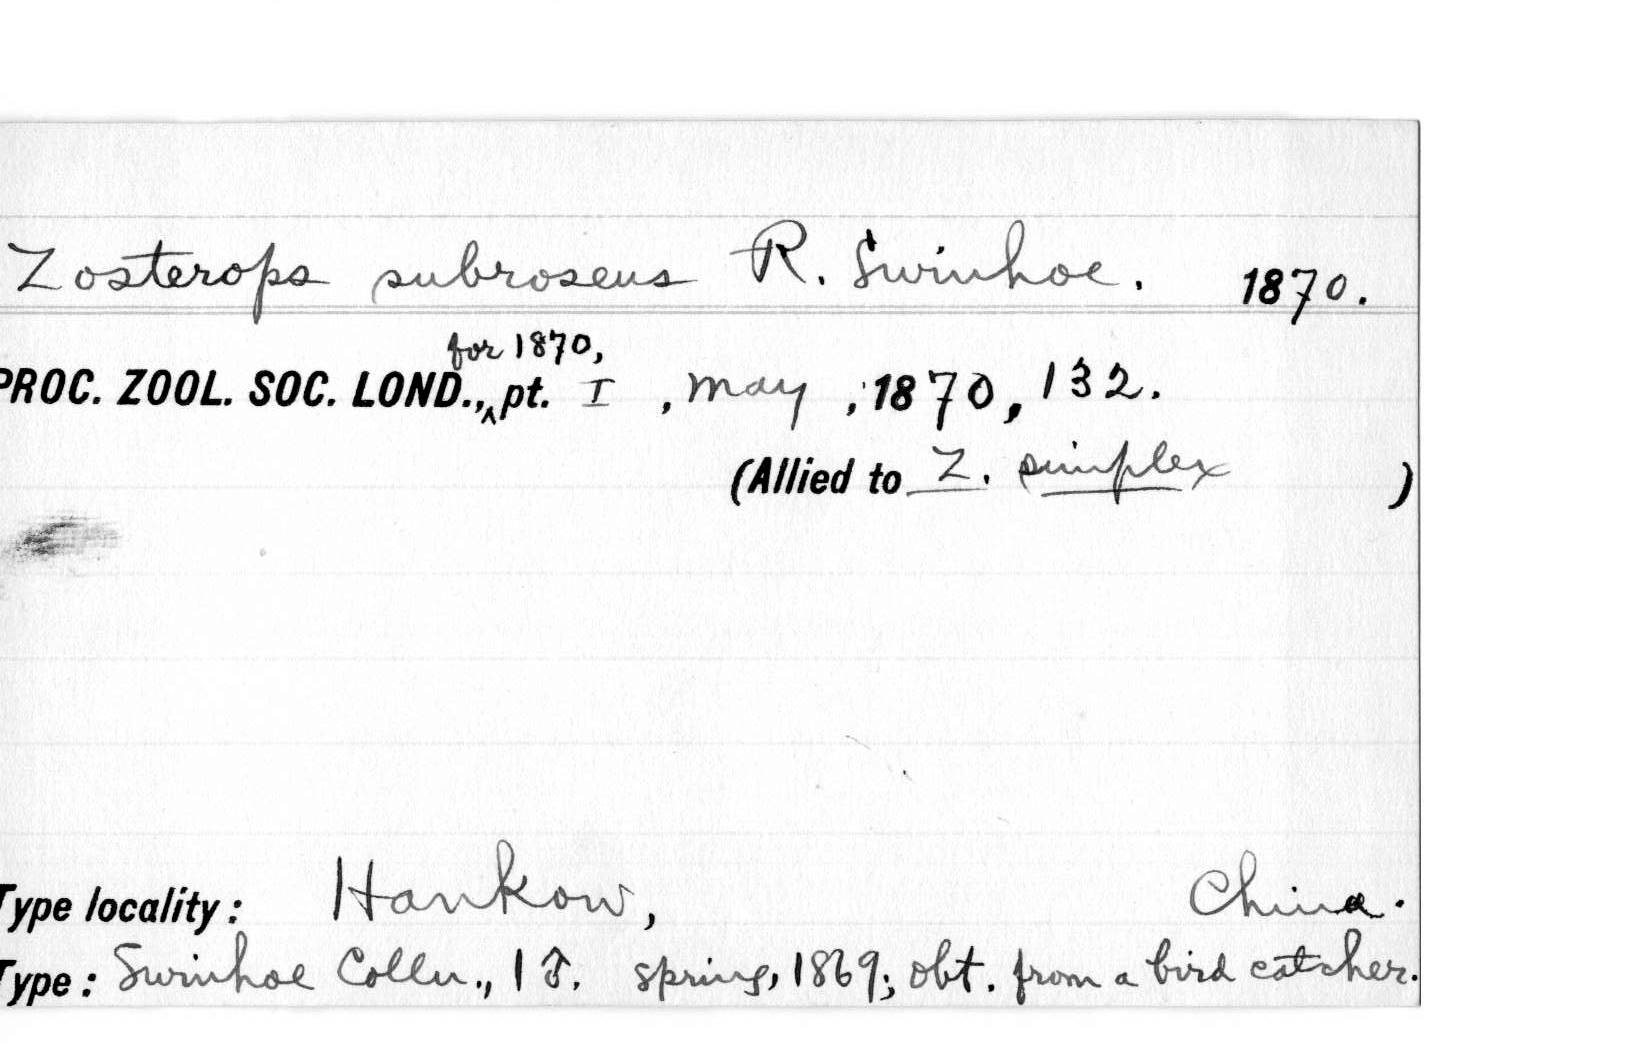 Zosterops subroseus R. Swinhoe. 1870.
for 1870,
PROC. ZOOL. SOC. LOND., ^ pt. I , May , 1870, 132.
(Allied to Z. simplex )
Type locality: Hankow, China.
Type: Swinhoe Colln., 1 ♂. spring, 1869; obt. from a bird catcher.